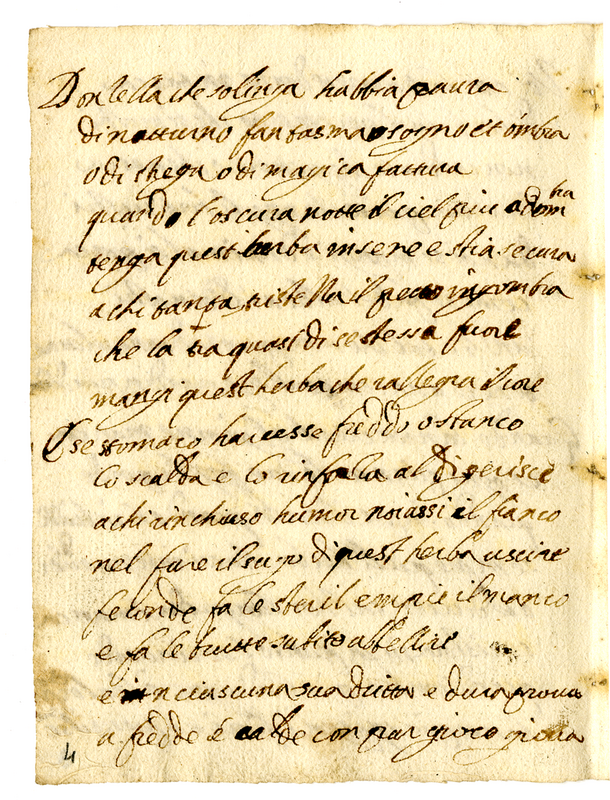 Donzella che solinga habbia paura
di notturno fantasma o sogno et ombra
o di strega o di magica fattura
quando l'oscura notte il ciel piu adombra
tenga quest herba in se ne e stia secura
a chi tanta tristezza il petto ingombra
che la fia quasi di se stessa fuore
mangi quest herba che rallegra il core
O se stomaco havesse freddo o stanco
lo scalda e lo rinfo la al digerisce
a chi rinchiuso humor noiassi il fianco
nel fare il sugo di quest herba uscire
feconde fa le steril empie il manco
e fa le brutte subito abbellire
e in ciascuna sua dura prova
a fredde é calde con par gioco giova
4